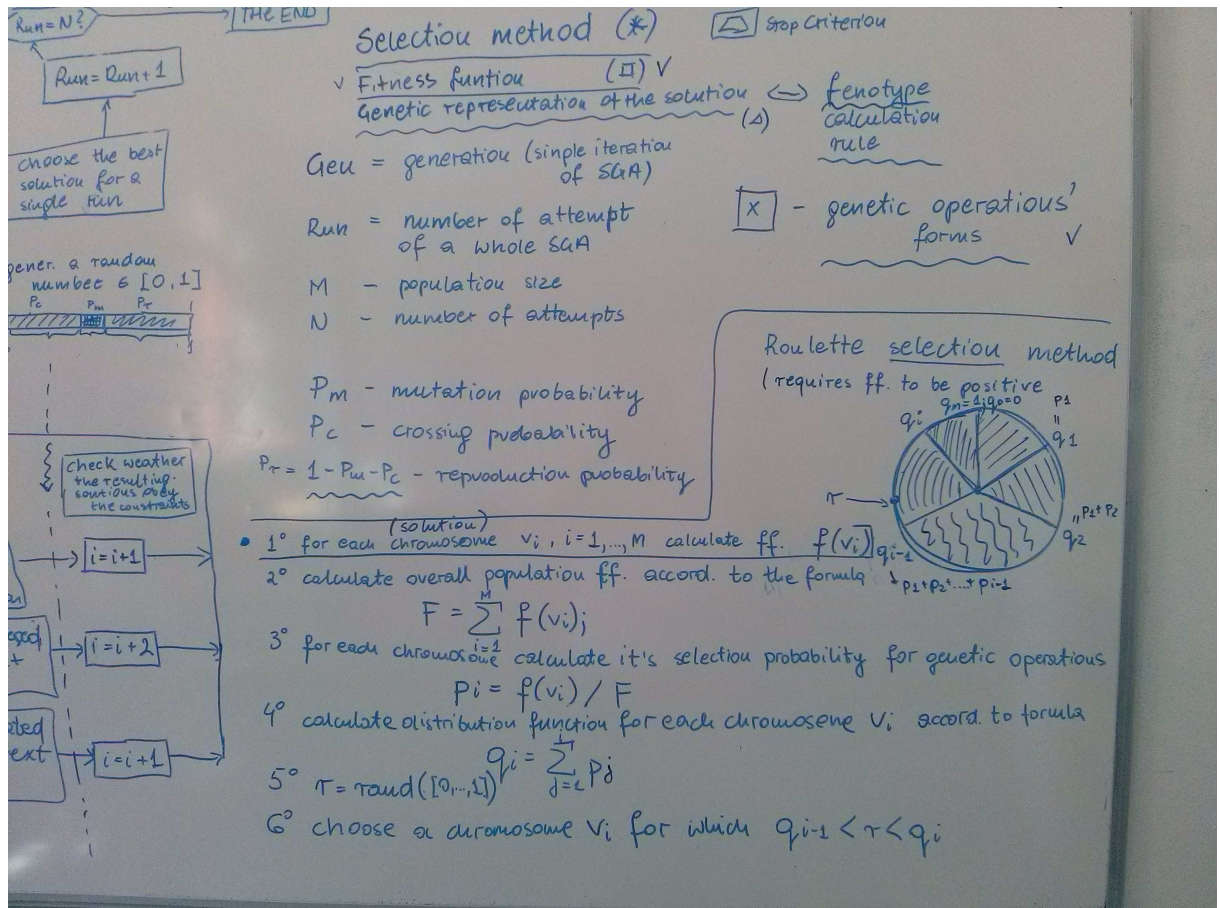 Run=N?
THE END
Run=Run+1
choose the best
solution for a
single run
gener. a random
number ∈ [0,1]
Pc Pm Pr
1
check weather
the resulting
soutions obey
the constraints
i=i+1
i=i+2
i=i+1
ext
Selection method (*)
Stop Criterion
v Fitness funtion (□) V
Genetic representation of the solution <=> fenotype
(△) calculation
rule
Gen = generation (sinple iteration
of SGA)
Run = number of attempt
of a whole SGA
X - genetic operations'
forms V
M - population size
N - number of attempts
Pm - mutation probability
Pc - crossing probability
Pr = 1-Pm-Pc - reproduction probability
Roulette selection method
(requires ff. to be positive
qn=1; q0=0
P1
=
q1
qi
r
P1+P2
q2
qi-1
P1+P2+...+Pi-1
(solution)
• 1° for each chromosome vi, i=1,...,M calculate ff. f(vi)
2° calculate overall population ff. accord. to the formula
F = ∑_{i=1}^{M} f(vi);
3° for each chromosome calculate it's selection probability for genetic operations
Pi = f(vi) / F
4° calculate distribution function for each chromosene vi accord. to formula
qi = ∑_{j=1}^{i} Pj
5° r=rand([0,...,1])
6° choose a chromosome vi for which qi-1 < r < qi